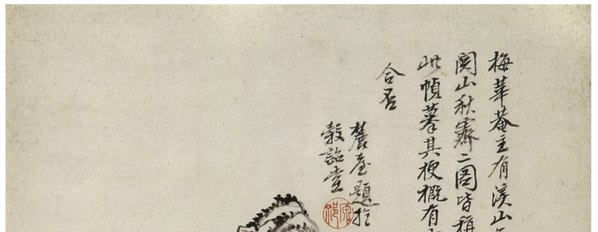 梅華菴主有溪山
関山秋霽二圖皆稱
此幀摹其梗概有
合否
麓臺題於
穀詒堂